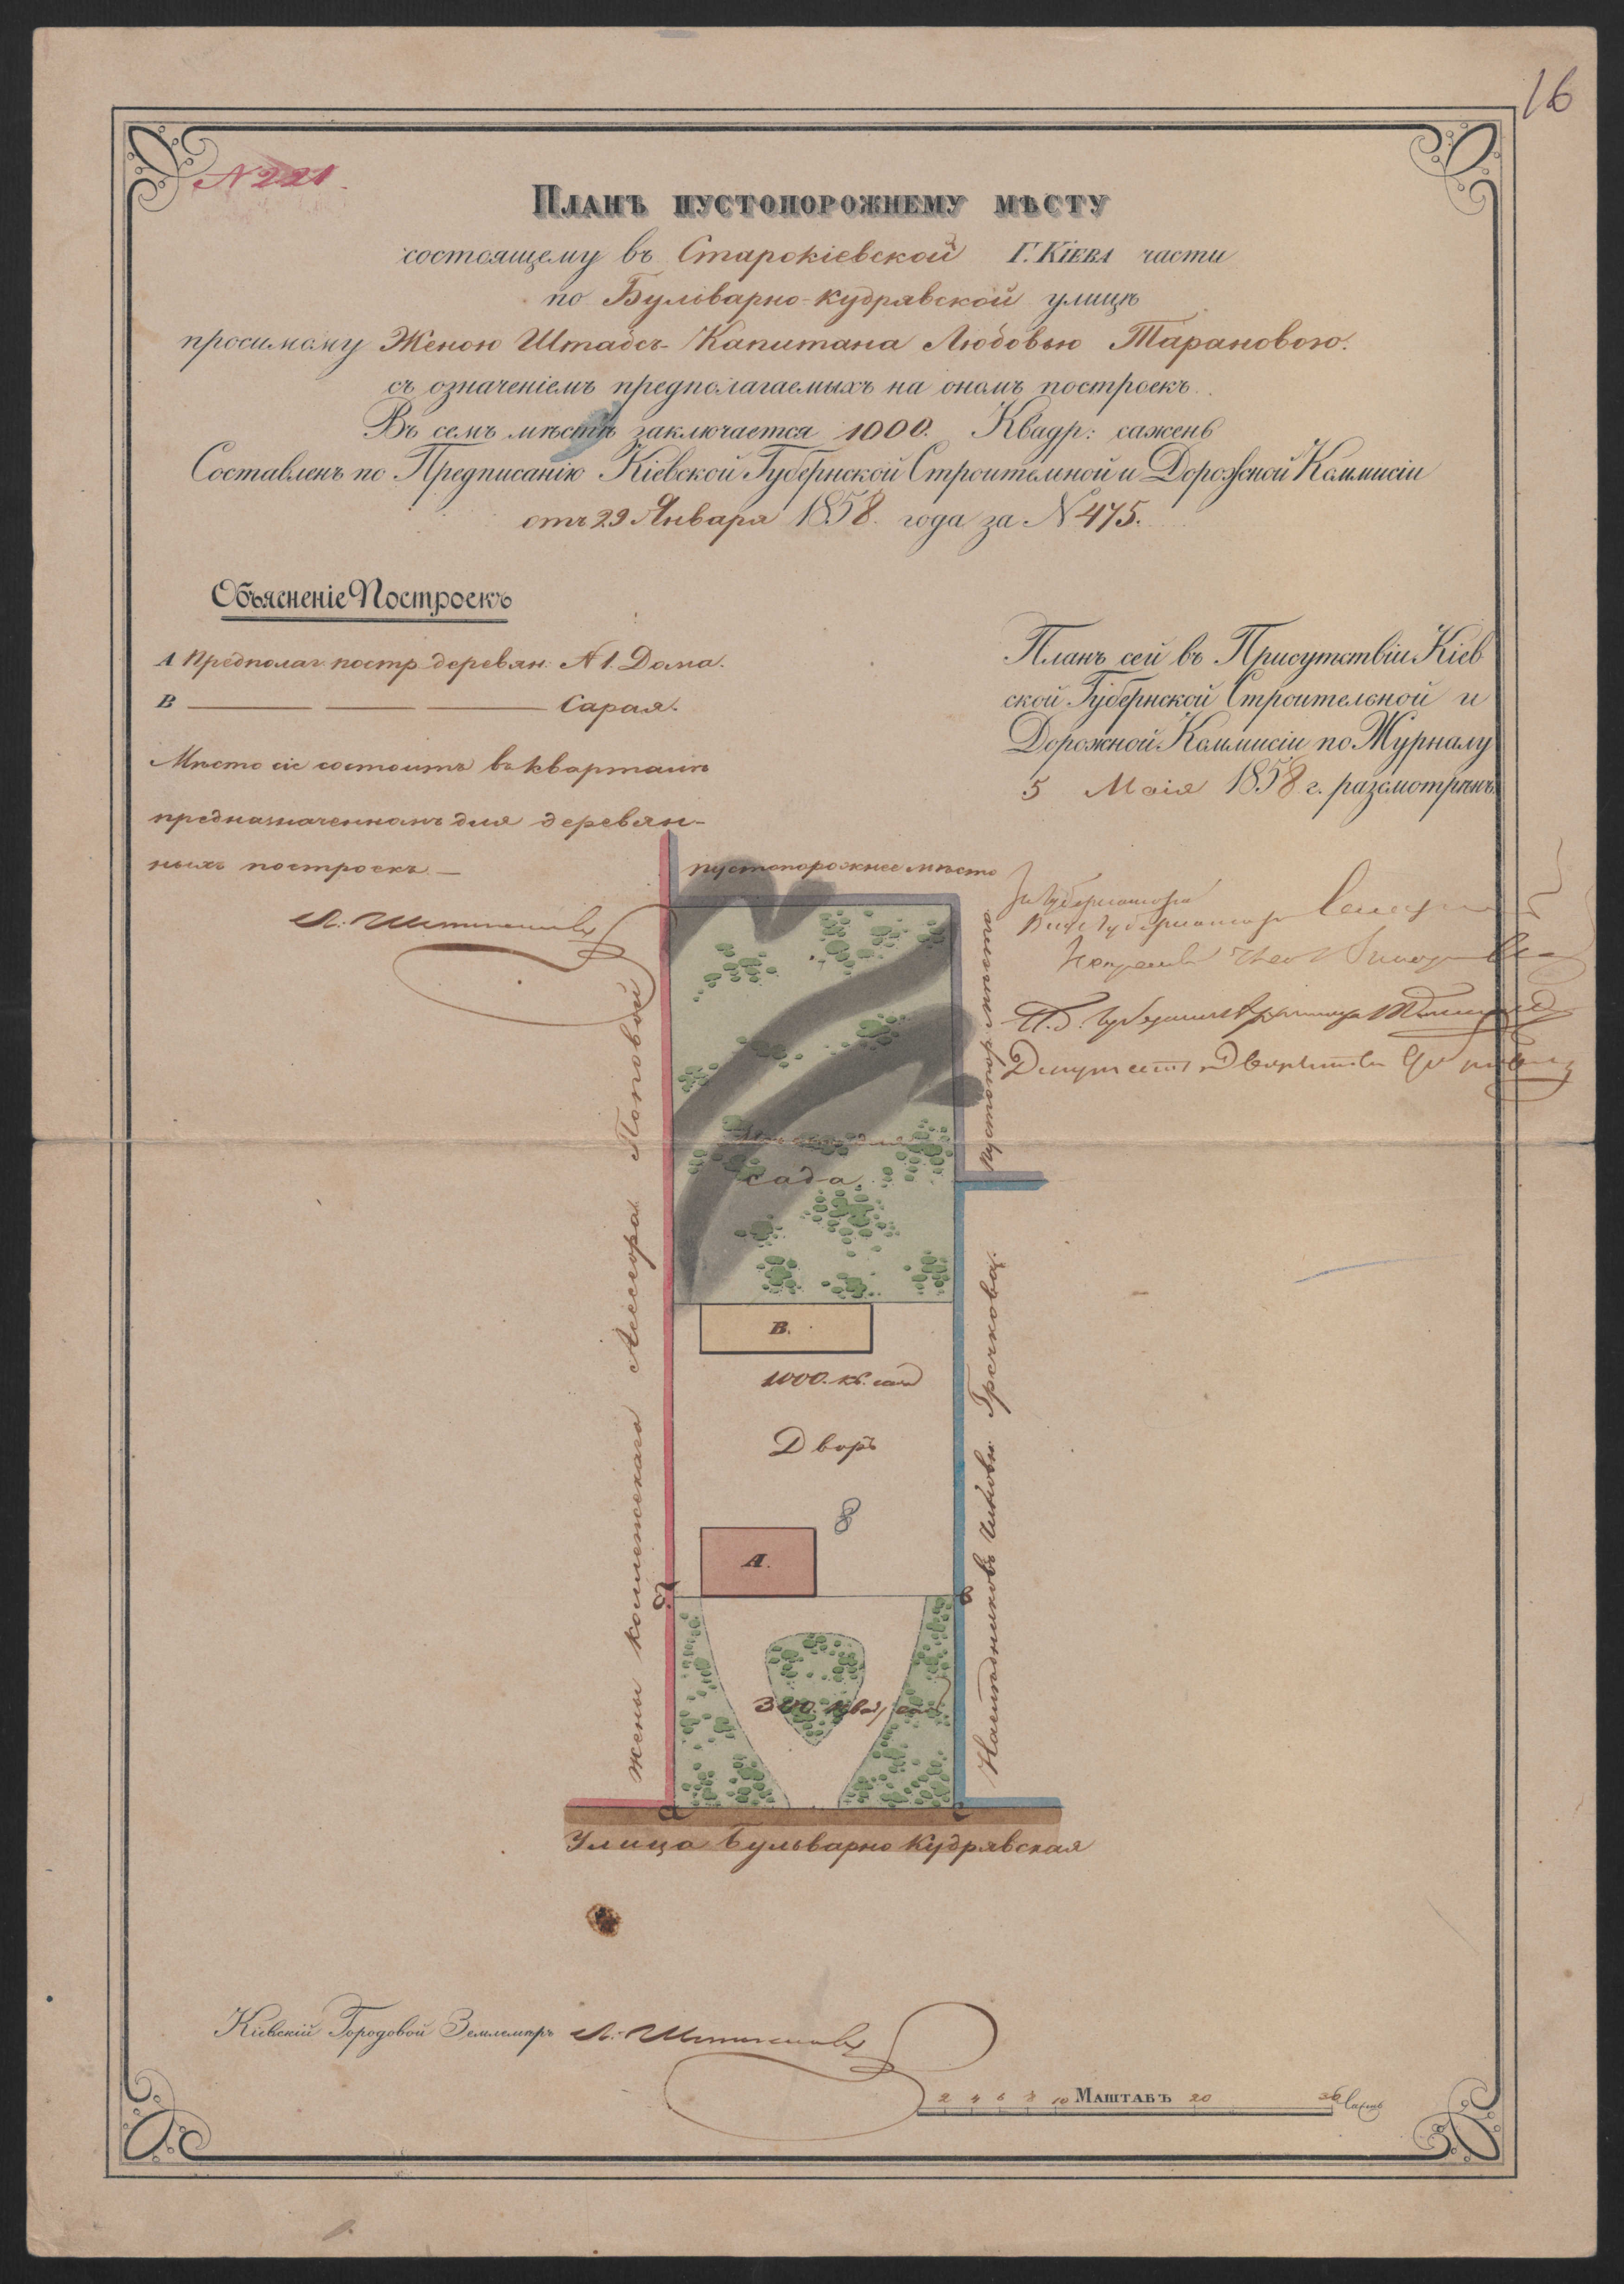 16
N 221.
Планъ пустопорожнему мѣсту
состоящему въ Старокіевской Г. Кіева части
по Бульварно-кудрявской улицѣ
просимому Женою Штабсъ-Капитана Любовью Тарановою.
съ означеніемъ предполагаемыхъ на ономъ построекъ.
Въ семъ мѣстѣ заключается 1000. Квадр: саженъ
Составленъ по Предписанію Кіевской Губернской Строительной и Дорожной Коммисіи
отъ 29 Января 1858. года за N 475.
Объясненіе Построекъ
А Предполаг. постр. деревян. N 1. Дома.
В Сарая.
Мѣсто сіе состоитъ въ кварталѣ
предназначенномъ для деревян-
ныхъ построекъ. —
Планъ сей въ Присутствіи Кіев
ской Губернской Строительной и
Дорожной Коммисіи по Журналу
5 Маія 1858 г. разсмотрѣнъ
За Губернатора
Вице Губернаторъ
пустопорожнее мѣсто
пустопор. мѣсто
жены коллежскаго Ассесора Поповой
для
сада.
В.
1000. кв. саж
Дворъ
8
А.
б
в
340. квад. саж
Наслѣдниковъ Чиновн. Гречкова.
а
г
Улица Бульварно Кудрявская
Кіевскій Городовой Землемѣръ
2 4 6 8 10 Маштабъ 20 30 Саженъ